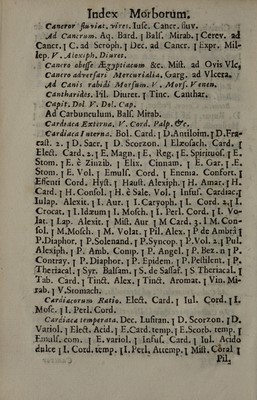 Index Morborum.
Cancror fluvial. vires. Iusc. Cancr. fluv.
Ad Cancrum. Aq. Bard. ʃ Bals. Mirab. ʃ Cerev. ad
Cancr. ʃ C. ad Scroph. ʃ Dec. ad Cancr. ʃ Expr. Mil-
lep. V. Alexiph. Diuret.
Cancro obesse Ægyptiacum &c. Mist. ad Ovis Vlc.
Cancro adversari Mercurialia. Garg. ad Vlcera.
Ad Canis rabidi Morsum. V. Mors. Venen.
Cantharides. Pil. Diuret. ʃ Tinc. Canthar.
Capit. Dol. V. Dol. Cap.
Ad Carbunculum. Bals. Mirab.
Cardiaca Externa. V. Cord. Palp. &c.
Cardiaca Interna. Bol. Card. ʃ D. Antiloim. ʃ D. Fra-
cast. 2. ʃ D. Sacr. ʃ D. Scorzon. ʃ Elæosach. Card. ʃ
Elect. Card. 2. ʃ E. Magn. ʃ E. Reg. ʃ E. Spirituos. ʃ E.
Stom. ʃ E. è Zinzib. ʃ Elix. Cinnam. ʃ E. Gar. ʃ E.
Stom. ʃ E. Vol. ʃ Emuls. Cord. ʃ Enema. Confort. ʃ
Essenti Cord. Hyst. ʃ Haust. Alexiph. ʃ H. Amar. ʃ H.
Card. ʃ H. Consol. ʃ H. è Sale. Vol. ʃ Infus. Cardiac. ʃ
Iulap. Alexit. ʃ I. Aur. ʃ I. Caryoph. ʃ I. Cord. 2. ʃ I.
Crocat. ʃ I. Idæum ʃ I. Mosch. ʃ I. Perl. Cord. ʃ I. Vo-
lat. ʃ Lap. Alexit. ʃ Mist. Aur ʃ M Card. 2. ʃ M. Con-
sol. ʃ M. Mosch. ʃ M. Volat. ʃ Pil. Alex. ʃ P de Ambrâ ʃ
P. Diaphor. ʃ P. Solenand. ʃ P. Syncop. ʃ P. Vol. 2. ʃ Pul.
Alexiph. ʃ P. Amb. Comp. ʃ P. Angel. ʃ P. Bez. ʃ P.
Contrayr. ʃ P. Diaphor. ʃ P. Epidem. ʃ P. Pestilent. ʃ P.
Theriacal. ʃ Syr. Balsam. ʃ S. de Sassaf. ʃ S Theriacal. ʃ
Tab. Card. ʃ Tinct. Alex. ʃ Tinct. Aromat. ʃ Vin. Mi-
rab. ʃ V. Stomach.
Cardiacorum Ratio. Elect. Card. ʃ Iul. Cord. ʃ I.
Mosc. ʃ I. Perl. Cord.
Cardiaca temperata. Dec. Lusitan. ʃ D. Scorzon. ʃ D.
Variol. ʃ Elect. Acid. ʃ E. Card. temp. ʃ E. Scorb. temp. ʃ
Emuls. com. ʃ E. variol. ʃ Infus. Card. ʃ Iul. Acido
dulce ʃ I. Cord. temp. ʃ I. Perl. Attemp. ʃ Mist. Coral ʃ
Pil.